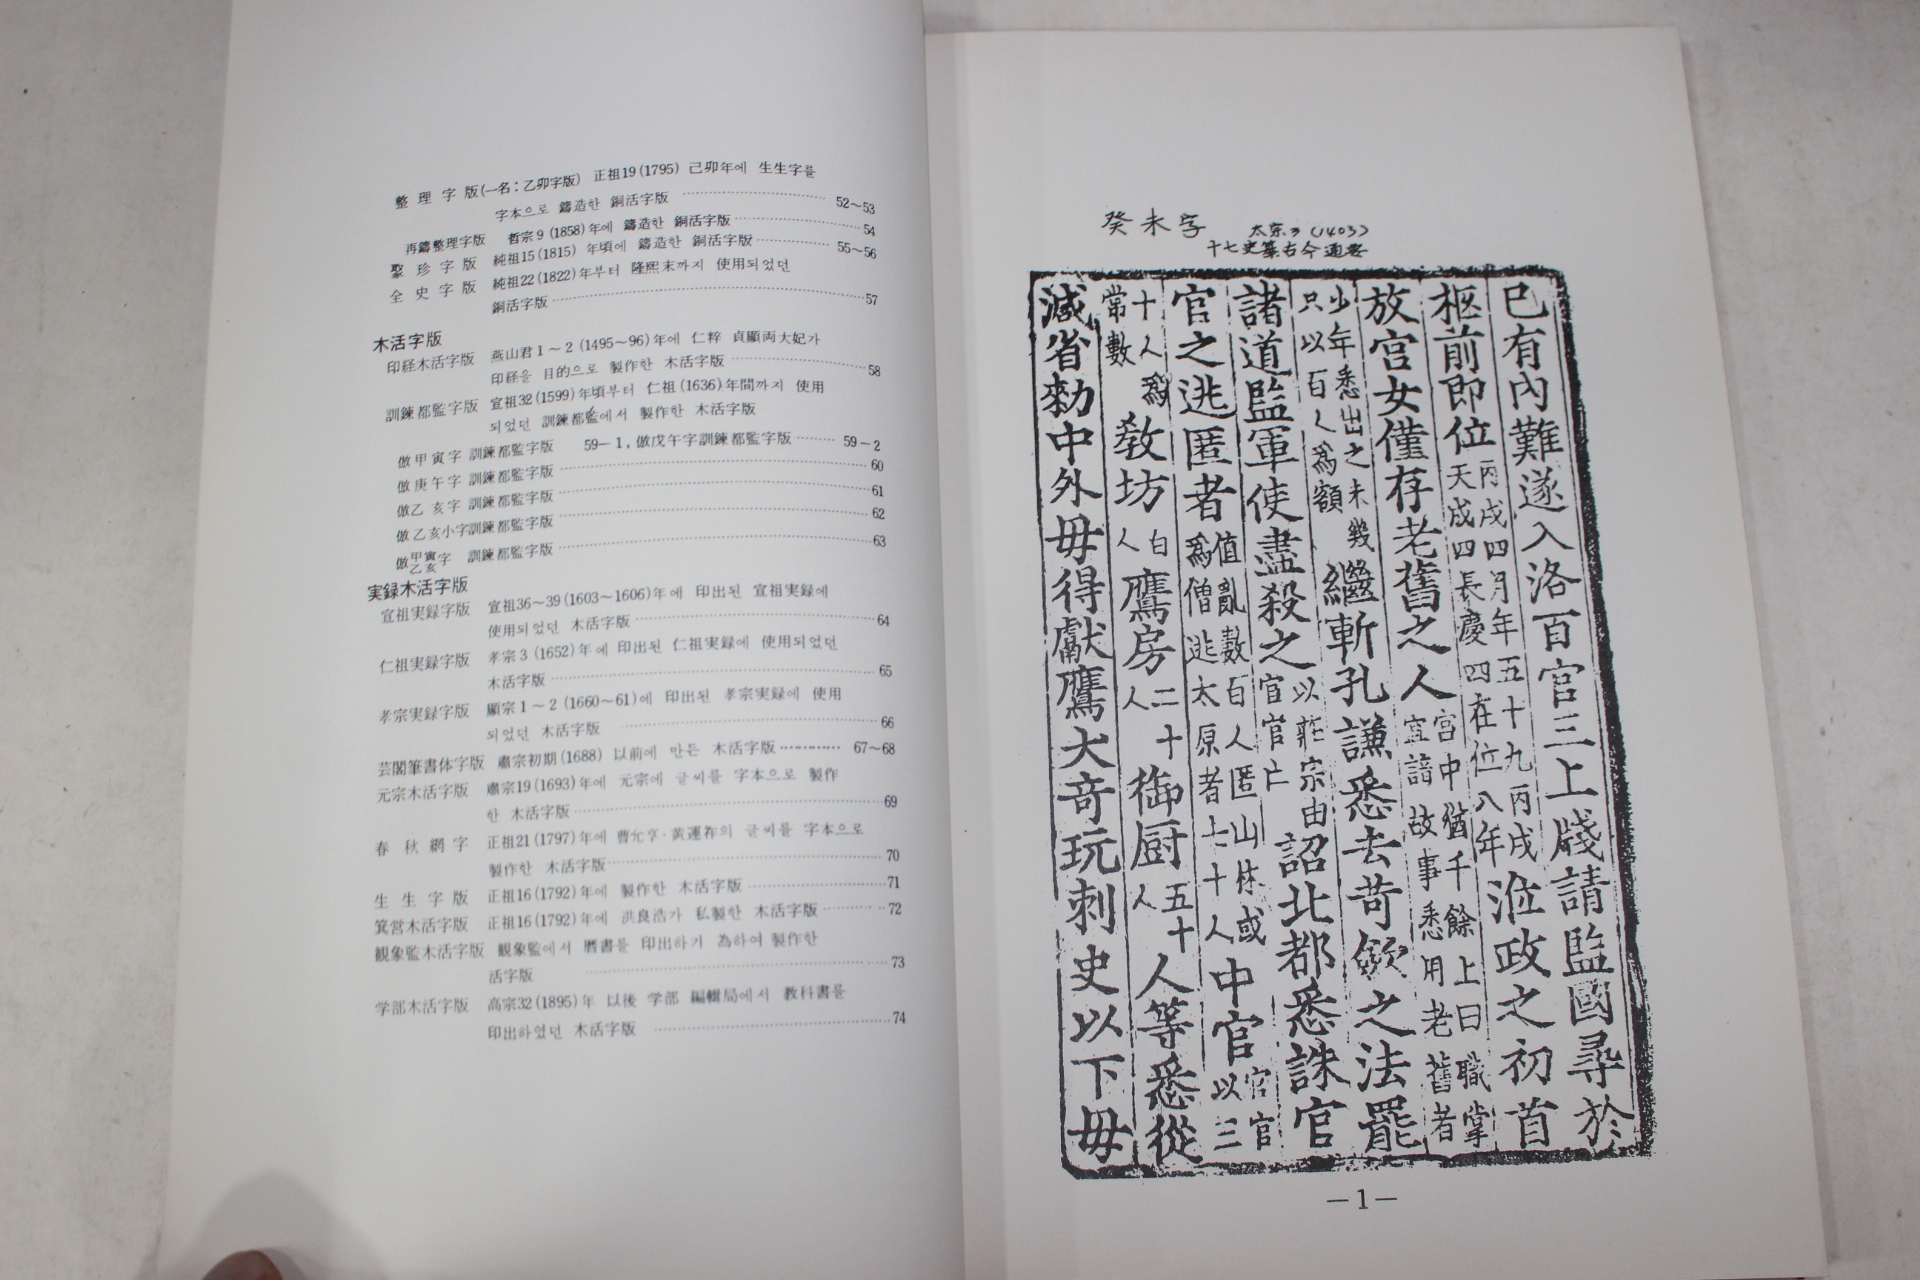 整理字版(一名:乙卯字版) 正祖19(1795) 己卯年에 生生字를
字本으로 鑄造한 銅活字版 52~53
再鑄整理字版 哲宗9(1858)年에 鑄造한 銅活字版 54
聚珍字版 純祖15(1815) 年頃에 鑄造한 銅活字版 55~56
全史字版 純祖22(1822)年부터 隆熙末까지 使用되었던
銅活字版 57
木活字版
印経木活字版 燕山君1~2(1495~96)年에 仁粹 貞顯両大妃가
印経을 目的으로 製作한 木活字版 58
訓鍊都監字版 宣祖32(1599)年頃부터 仁祖(1636)年間까지 使用
되었던 訓鍊都監에서 製作한 木活字版
倣甲寅字 訓鍊都監字版 59-1, 倣戊午字訓鍊都監字版 59-2
倣庚午字 訓鍊都監字版 60
倣乙亥字 訓鍊都監字版 61
倣乙亥小字訓鍊都監字版 62
倣甲寅乙亥字 訓鍊都監字版 63
実録木活字版
宣祖実録字版 宣祖36~39(1603~1606)年에 印出된 宣祖実録에
使用되었던 木活字版 64
仁祖実録字版 孝宗3(1652)年에 印出된 仁祖実録에 使用되었던
木活字版 65
孝宗実録字版 顯宗1~2(1660~61)에 印出된 孝宗実録에 使用
되었던 木活字版 66
芸閣筆書体字版 肅宗初期(1688) 以前에 만든 木活字版 67~68
元宗木活字版 肅宗19(1693)年에 元宗에 글씨를 字本으로 製作
한 木活字版 69
春秋綱字 正祖21(1797)年에 曹允亨·黃運祚의 글씨를 字本으로
製作한 木活字版 70
生生字版 正祖16(1792)年에 製作한 木活字版 71
箕営木活字版 正祖16(1792)年에 洪良浩가 私製한 木活字版 72
観象監木活字版 観象監에서 曆書를 印出하기 為하여 製作한
活字版 73
学部木活字版 高宗32(1895)年 以後 学部 編輯局에서 教科書를
印出하였던 木活字版 74
癸未字 太宗3(1403)
十七史纂古今通要
已有內難遂入洛百官三上牋請監國尋於
柩前即位丙戌四月年五十九丙戌天成四長慶四在位八年涖政之初首
放宮女僅存老舊之人宮中猶千餘上曰職掌宜諳故事悉用老舊者
少年悉出之未幾只以百人為額繼斬孔謙悉去苛斂之法罷
諸道監軍使盡殺之以莊宗由宦官亡詔北都悉誅宦
官之逃匿者值亂數百人匿山林或爲僧逃太原者七十人中官宦官以三
十人爲常數教坊百人鷹房二十人御厨五十人人等悉從
減省勑中外毋得獻鷹犬奇玩刺史以下毋
—1—